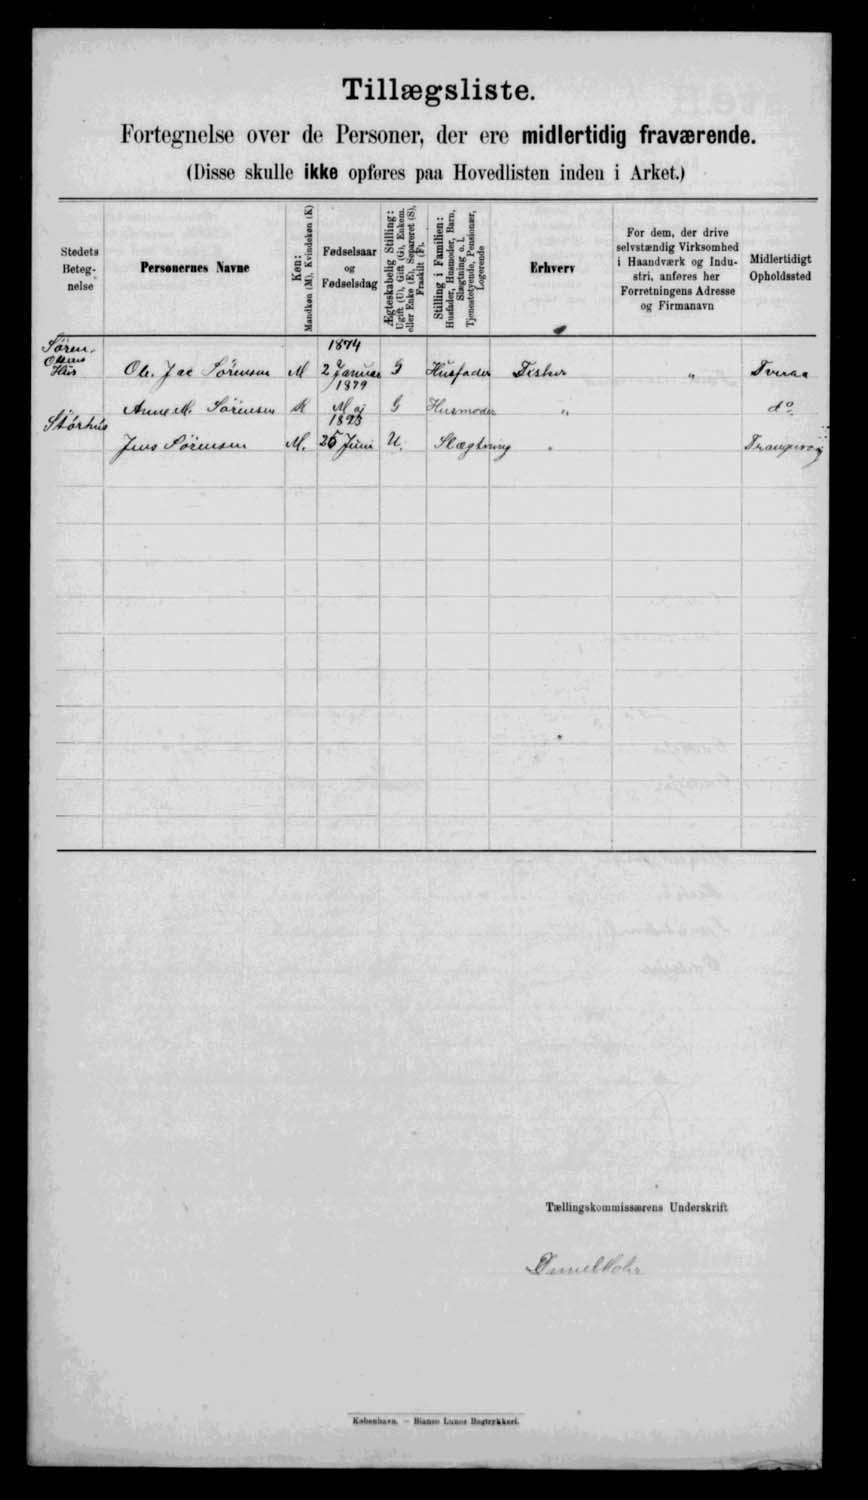 Tillægsliste.
Fortegnelse over de Personer, der ere midlertidig fraværende.
(Disse skulle ikke opføres paa Hovedlisten inden i Arket.)
Stedets Betegnelse
Personernes Navne
Køn: Mandkøn (M), Kvindekøn (K)
Fødselsaar og Fødselsdag
Ægteskabelig Stilling: Ugift (U), Gift (G), Enkem. eller Enke (E), Separeret (S), Fraskilt (F).
Stilling i Familien: Husfader, Husmoder, Barn, Slægtning o. l. Tjenestetyende, Pensionær, Logerende
Erhverv
For dem, der drive selvstændig Virksomhed i Haandværk og Industri, anføres her Forretningens Adresse og Firmanavn
Midlertidigt Opholdssted
Sören
Hus
1874
Ole Jac Sörensen M 2 Januar G Husfader Fisker " Tveraa
1879
Anne M. Sörensen K Maj G Husmoder " do
Störhus
1893
Jens Sörensen M. 25 Juni U. Slægtning " Trangisvaag
Tællingskommissærens Underskrift
København. – Bianco Lunos Bogtrykkeri.